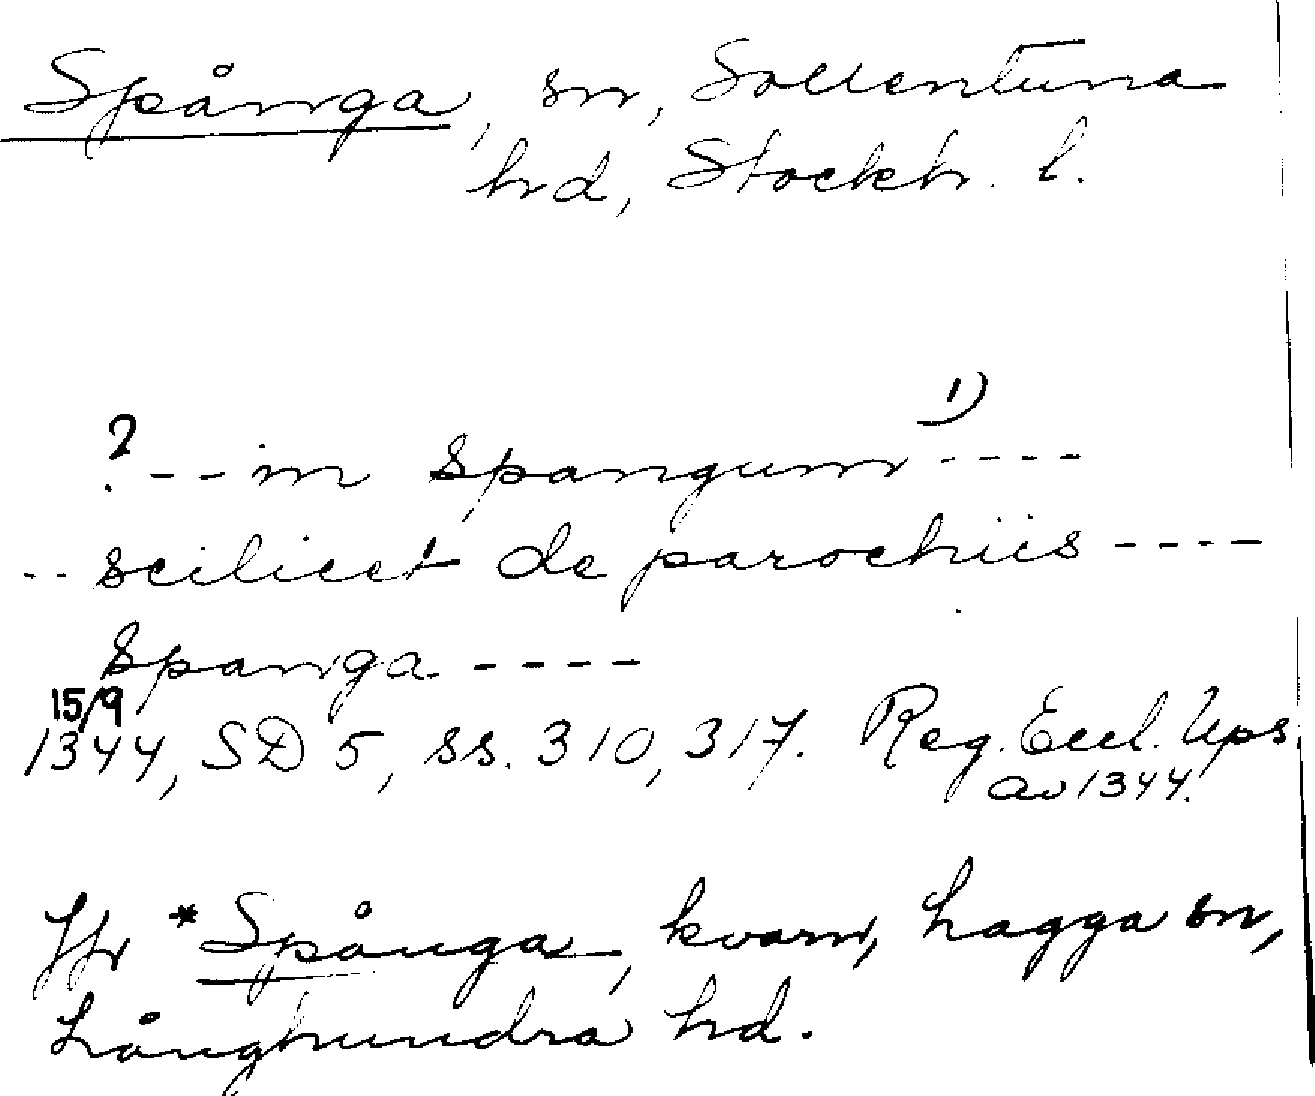 Spånga, sn, Sollentuna
hd, Stockh. l.
? --in Spangum 1) ----
-- scilicet de parochiis ----
Spanga ----
15/9
1344, SD 5, ss. 310, 317. Reg. Eccl. Ups.
av 1344.
Jfr *Spånga, kvarn, Lagga sn,
Långhundra hd.